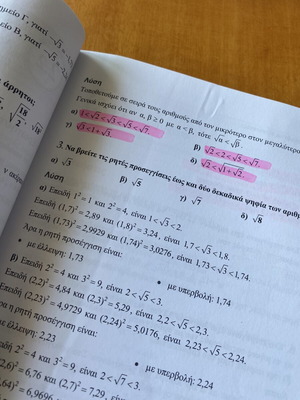 ημείο Γ, γιατί √3
είο Β, γιατί
Λύση
Τοποθετούμε σε σειρά τους αριθμούς από τον μικρότερο στον μεγαλύτερο
Γενικά ισχύει ότι αν α, β ≥ 0 με α < β, τότε √α < √β.
α) 1 < √2 < √3 < √5 < √7.
β) √2 < 2 < √5 < √7.
γ) √3 < 1 + √3.
δ) √2 < √1 + √2.
3. Να βρείτε τις ρητές προσεγγίσεις έως και δύο δεκαδικά ψηφία των αριθ
α) √3
β) √5
γ) √7
δ) √8
Λύση
α) Επειδή 1² = 1 και 2² = 4, είναι 1 < √3 < 2.
Επειδή (1,7)² = 2,89 και (1,8)² = 3,24, είναι 1,7 < √3 < 1,8.
(1,73)² = 2,9929 και (1,74)² = 3,0276, είναι 1,73 < √3 < 1,74.
Άρα η ρητή προσέγγιση είναι:
• με έλλειψη: 1,73
• με υπερβολή: 1,74
β) Επειδή 2² = 4 και 3² = 9, είναι 2 < √5 < 3.
Επειδή (2,2)² = 4,84 και (2,3)² = 5,29, είναι 2,2 < √5 < 2,3.
(2,23)² = 4,9729 και (2,24)² = 5,0176, είναι 2,23 < √5 < 2,24.
ρα η ρητή προσέγγιση είναι:
με έλλειψη: 2,23
• με υπερβολή: 2,24
2² = 4 και 3² = 9, είναι 2 < √7 < 3.
(2,6)² = 6,76 και (2,7)² = 7,29,
,64)² = 6,9696